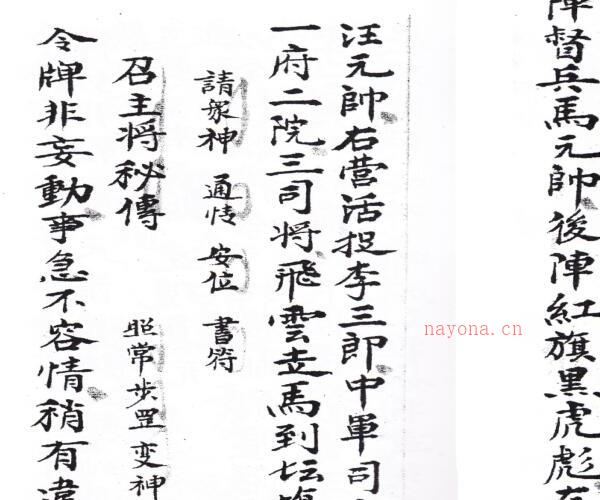 陣督兵馬元帥後陣紅旗黑虎彪
汪元帥右营活捉李三郎中軍司
一府二院三司將飛雲走馬到坛
請衆神 通情 安位 書符
召主将秘傳 照常步罡变神
令牌非妄動事急不容情稍有違
nayona.cn